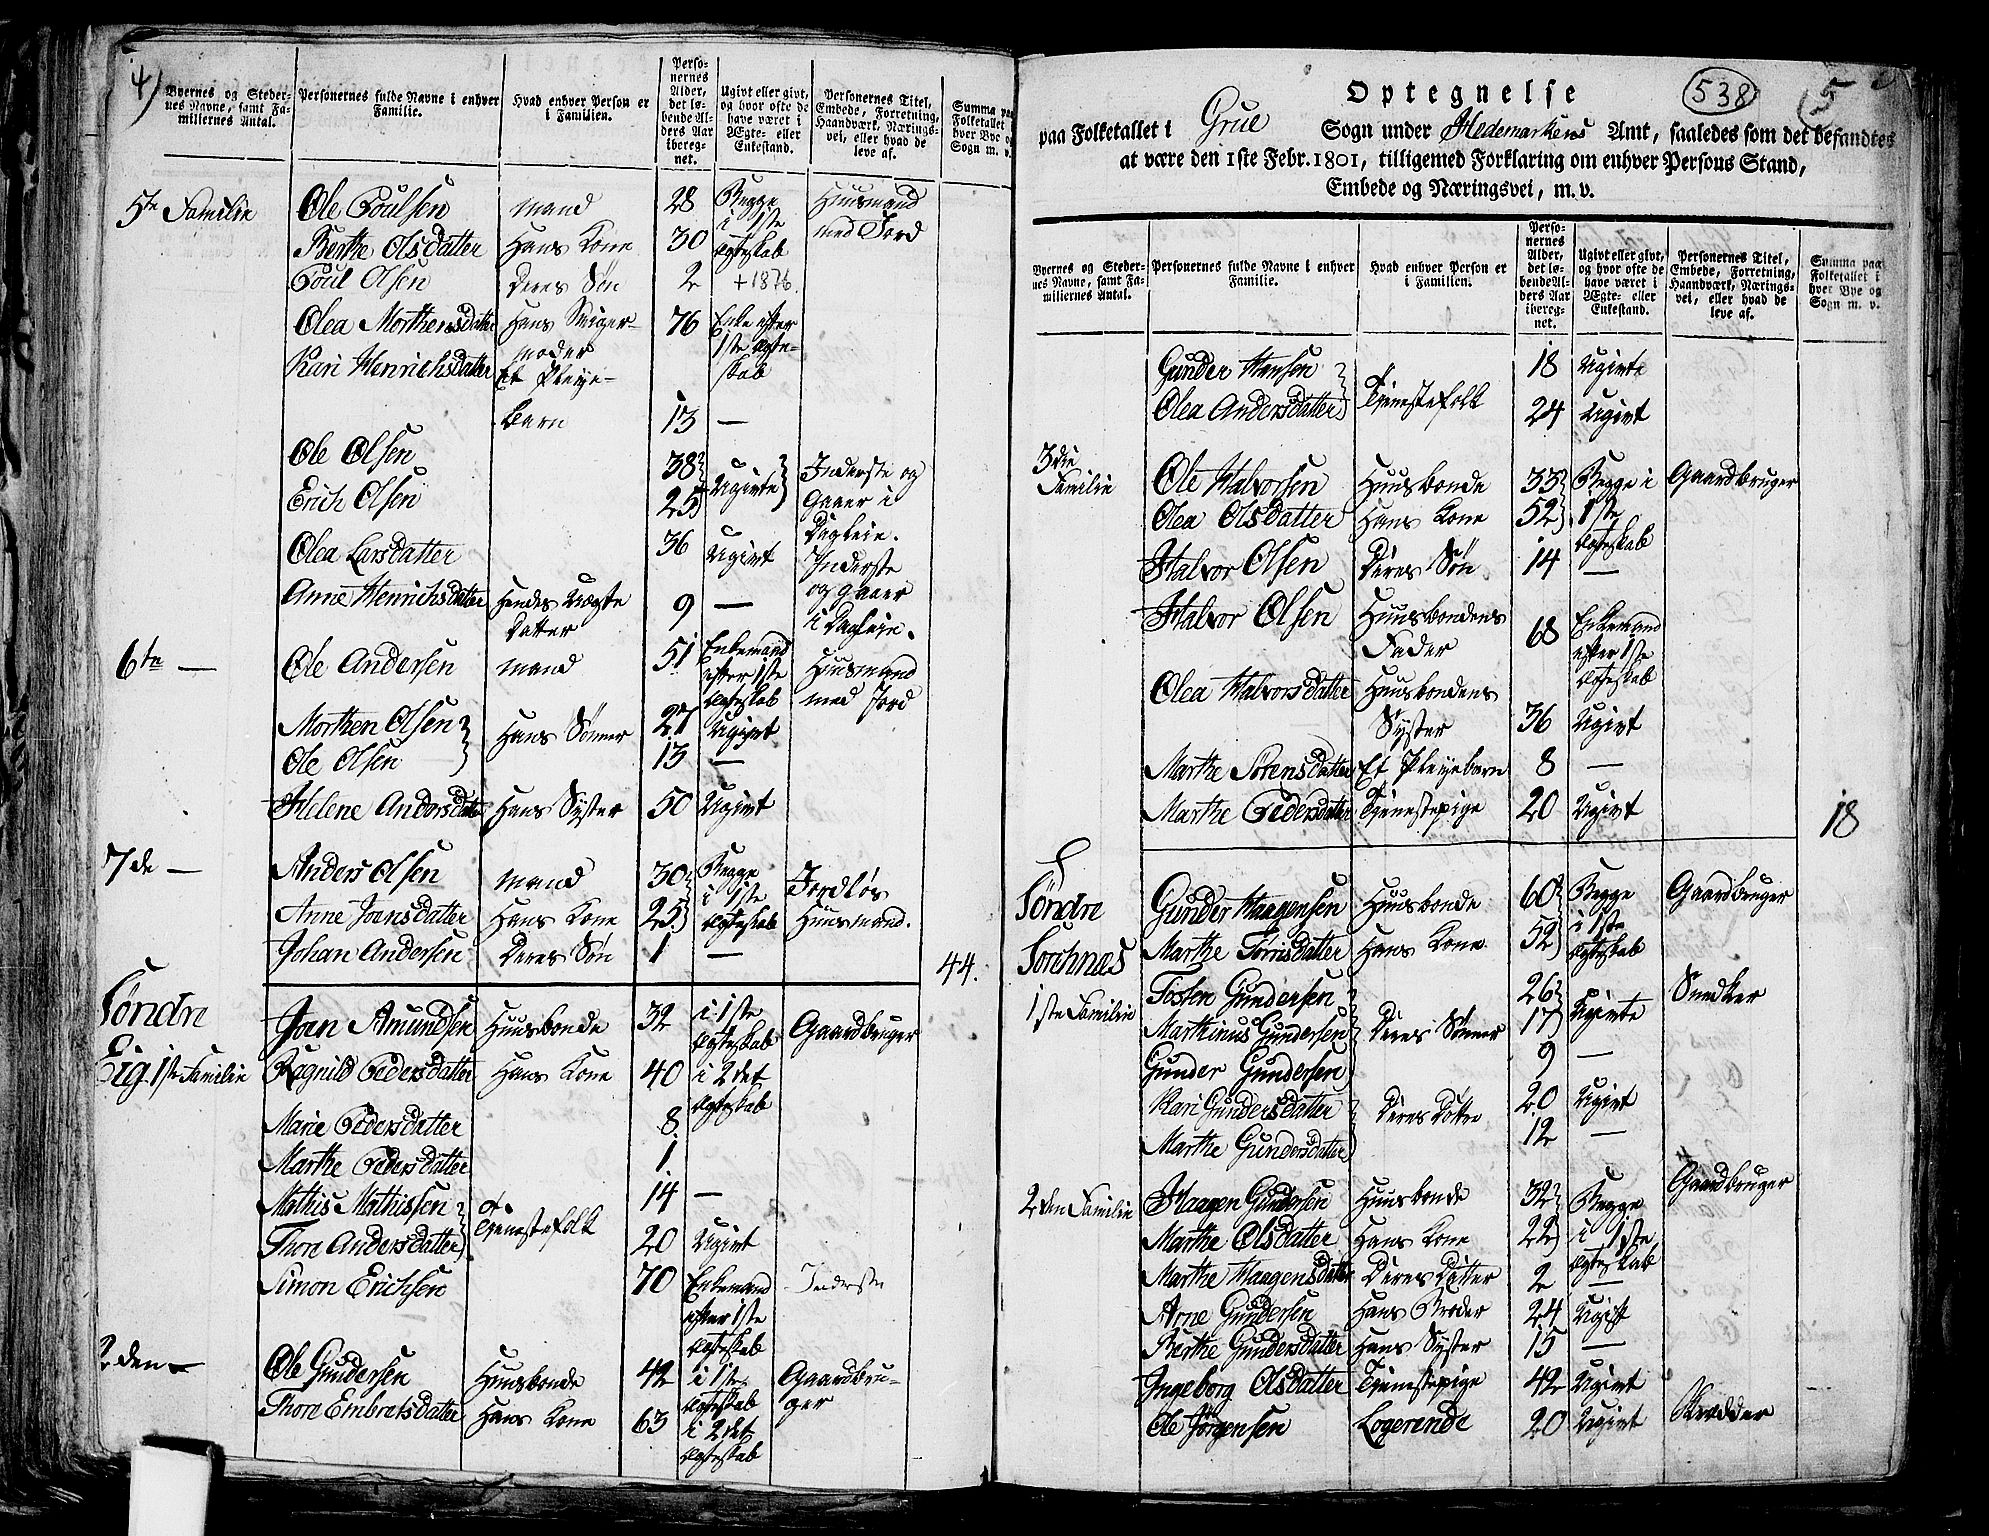 4)
Byernes og Steder-
nes Navne, samt Fa-
miliernes Antal.
Personernes fulde Navne i enhver
Familie.
Hvad enhver Person er
i Familien.
Perso-
nernes
Alder,
det lø-
bende Al-
ders Aar
iberegnet.
Ugivt eller givt,
og hvor ofte de
have været i
Ægte- eller
Enkestand.
Personernes Titel,
Embede, Forretning,
Haandværk, Nærings-
vei, eller hvad de
leve af.
Summa paa
Folketallet
hver Bye og
Sogn m. v.
5te Familie Ole Poulsen mand 28 Begge Huusmand
Berthe Olsdatter Hans Kone 30 i 1ste med Jord
Ægteskab
Poul Olsen Deres Søn 2 + 1876.
Olea Morthensdatter Hans Sviger- 76 Enke efter
moder 1ste Ægte-
skab
Kari Henrichsdatter Et Pleye-
barn 13 —
Ole Olsen 38 Ugivte Inderste og
Erich Olsen 25 Gaaer i
Dagleie.
Olea Larsdatter 36 Ugivt Inderste
og gaaer
i Dagleie.
Anne Henrichsdatter Hendes Uægte 9 —
Datter
6te — Ole Andersen mand 51 Enkemand Huusmand
efter 1ste med Jord
Ægteskab
Morthen Olsen Hans Sønner 27 Ugivt
Ole Olsen 13 —
Helene Andersdatter Hans Syster 50 Ugivt
7de — Anders Olsen mand 30 Begge Jordløs
Anne Joensdatter Hans Kone 25 i 1ste Huusmand.
Ægteskab
Johan Andersen Deres Søn 1 — 44.
Søndre
Lig. 1ste Familie Joen Amundsen Huusbonde 32 i 1ste Gaardbruger
Ægteskab
Ragnild Pedersdatter Hans Kone 40 i 2det
Ægteskab
Marie Pedersdatter 8
Marthe Pedersdatter 1
Mathis Mathissen Tjenestefolk 14 —
Thore Andersdatter 20 Ugivt
Simon Erichsen 70 Enkemand Inderste
efter 1ste
Ægteskab
2den — Ole Gundersen Huusbonde 42 i 1ste Gaardbru-
Ægteskab ger
Thore Embretsdatter Hans Kone 63 i 2det
Ægteskab
Optegnelse
538
5
paa Folketallet i Grue Sogn under Hedemarkens Amt, saaledes som det befandtes
at være den 1ste Febr. 1801, tilligemed Forklaring om enhver Persons Stand,
Embede og Næringsvei, m. v.
Byernes og Steder-
nes Navne, samt Fa-
miliernes Antal.
Personernes fulde Navne i enhver
Familie.
Hvad enhver Person er
i Familien.
Perso-
nernes
Alder,
det lø-
bende Al-
ders Aar
iberegnet.
Ugivt eller givt,
og hvor ofte de
have været i
Ægte- eller
Enkestand.
Personernes Titel,
Embede, Forretning,
Haandværk, Nærings-
vei, eller hvad de
leve af.
Summa paa
Folketallet i
hver Bye og
Sogn m. v.
Gunder Hansen Tjenestefolk 18 Ugivte
Olea Andersdatter 24 Ugivt
3die
Familie Ole Halvorsen Huusbonde 33 Begge i Gaardbruger
Olea Olsdatter Hans Kone 52 1ste
Ægteskab
Halvor Olsen Deres Søn 14 —
Halvor Olsen Huusbondens 68 Enkemand
Fader efter 1ste
Ægteskab
Olea Halvorsdatter Huusbondens
Syster 36 Ugivt
Marthe Sørensdatter Et Pleyebarn 8 —
Marthe Pedersdatter Tjenestepige 20 Ugivt 18
Søndre
Sorchnæs
1ste Familie
Gunder Haagensen Huusbonde 60 Begge Gaardbruger
Marthe Torrisdatter Hans Kone 52 i 1ste
Ægteskab
Tosten Gundersen 26 Ugivte Snedker
Marthinus Gundersen Deres Sønner 17
Gunder Gundersen 9 —
Kari Gundersdatter Deres Døttre 20 Ugivt
Marthe Gundersdatter 12 —
2den Familie Haagen Gundersen Huusbonde 32 Begge Gaardbruger
Marthe Olsdatter Hans Kone 22 i 1ste
Ægteskab
Marthe Haagensdatter Deres Datter 2 —
Arne Gundersen Hans Broder 24 Ugift
Berthe Gundersdatter Hans Syster 15 —
Ingeborg Olsdatter Tjenestepige 42 Ugivt
Ole Jørgensen Logerende 20 Ugivt Skrædder